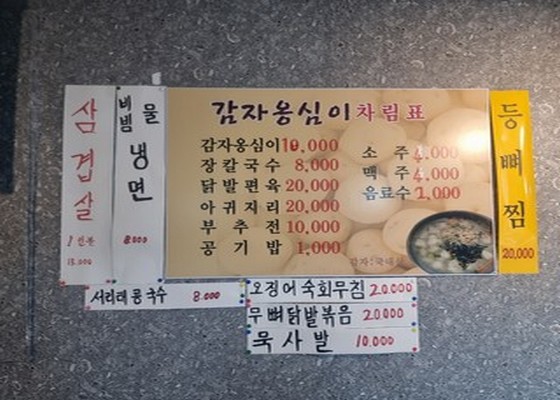 삼겹살
1인분
13.000
비빔 물
냉면
8.000
감자옹심이차림표
감자옹심이 10,000
장칼국수 8,000
닭발편육 20,000
아귀지리 20,000
부추전 10,000
공기밥 1,000
소주 4,000
맥주 4,000
음료수 2,000
감자:국내산
등뼈찜
20,000
서리태콩국수 8.000
오징어숙회무침 20.000
무뼈닭발볶음 20.000
묵사발 10.000